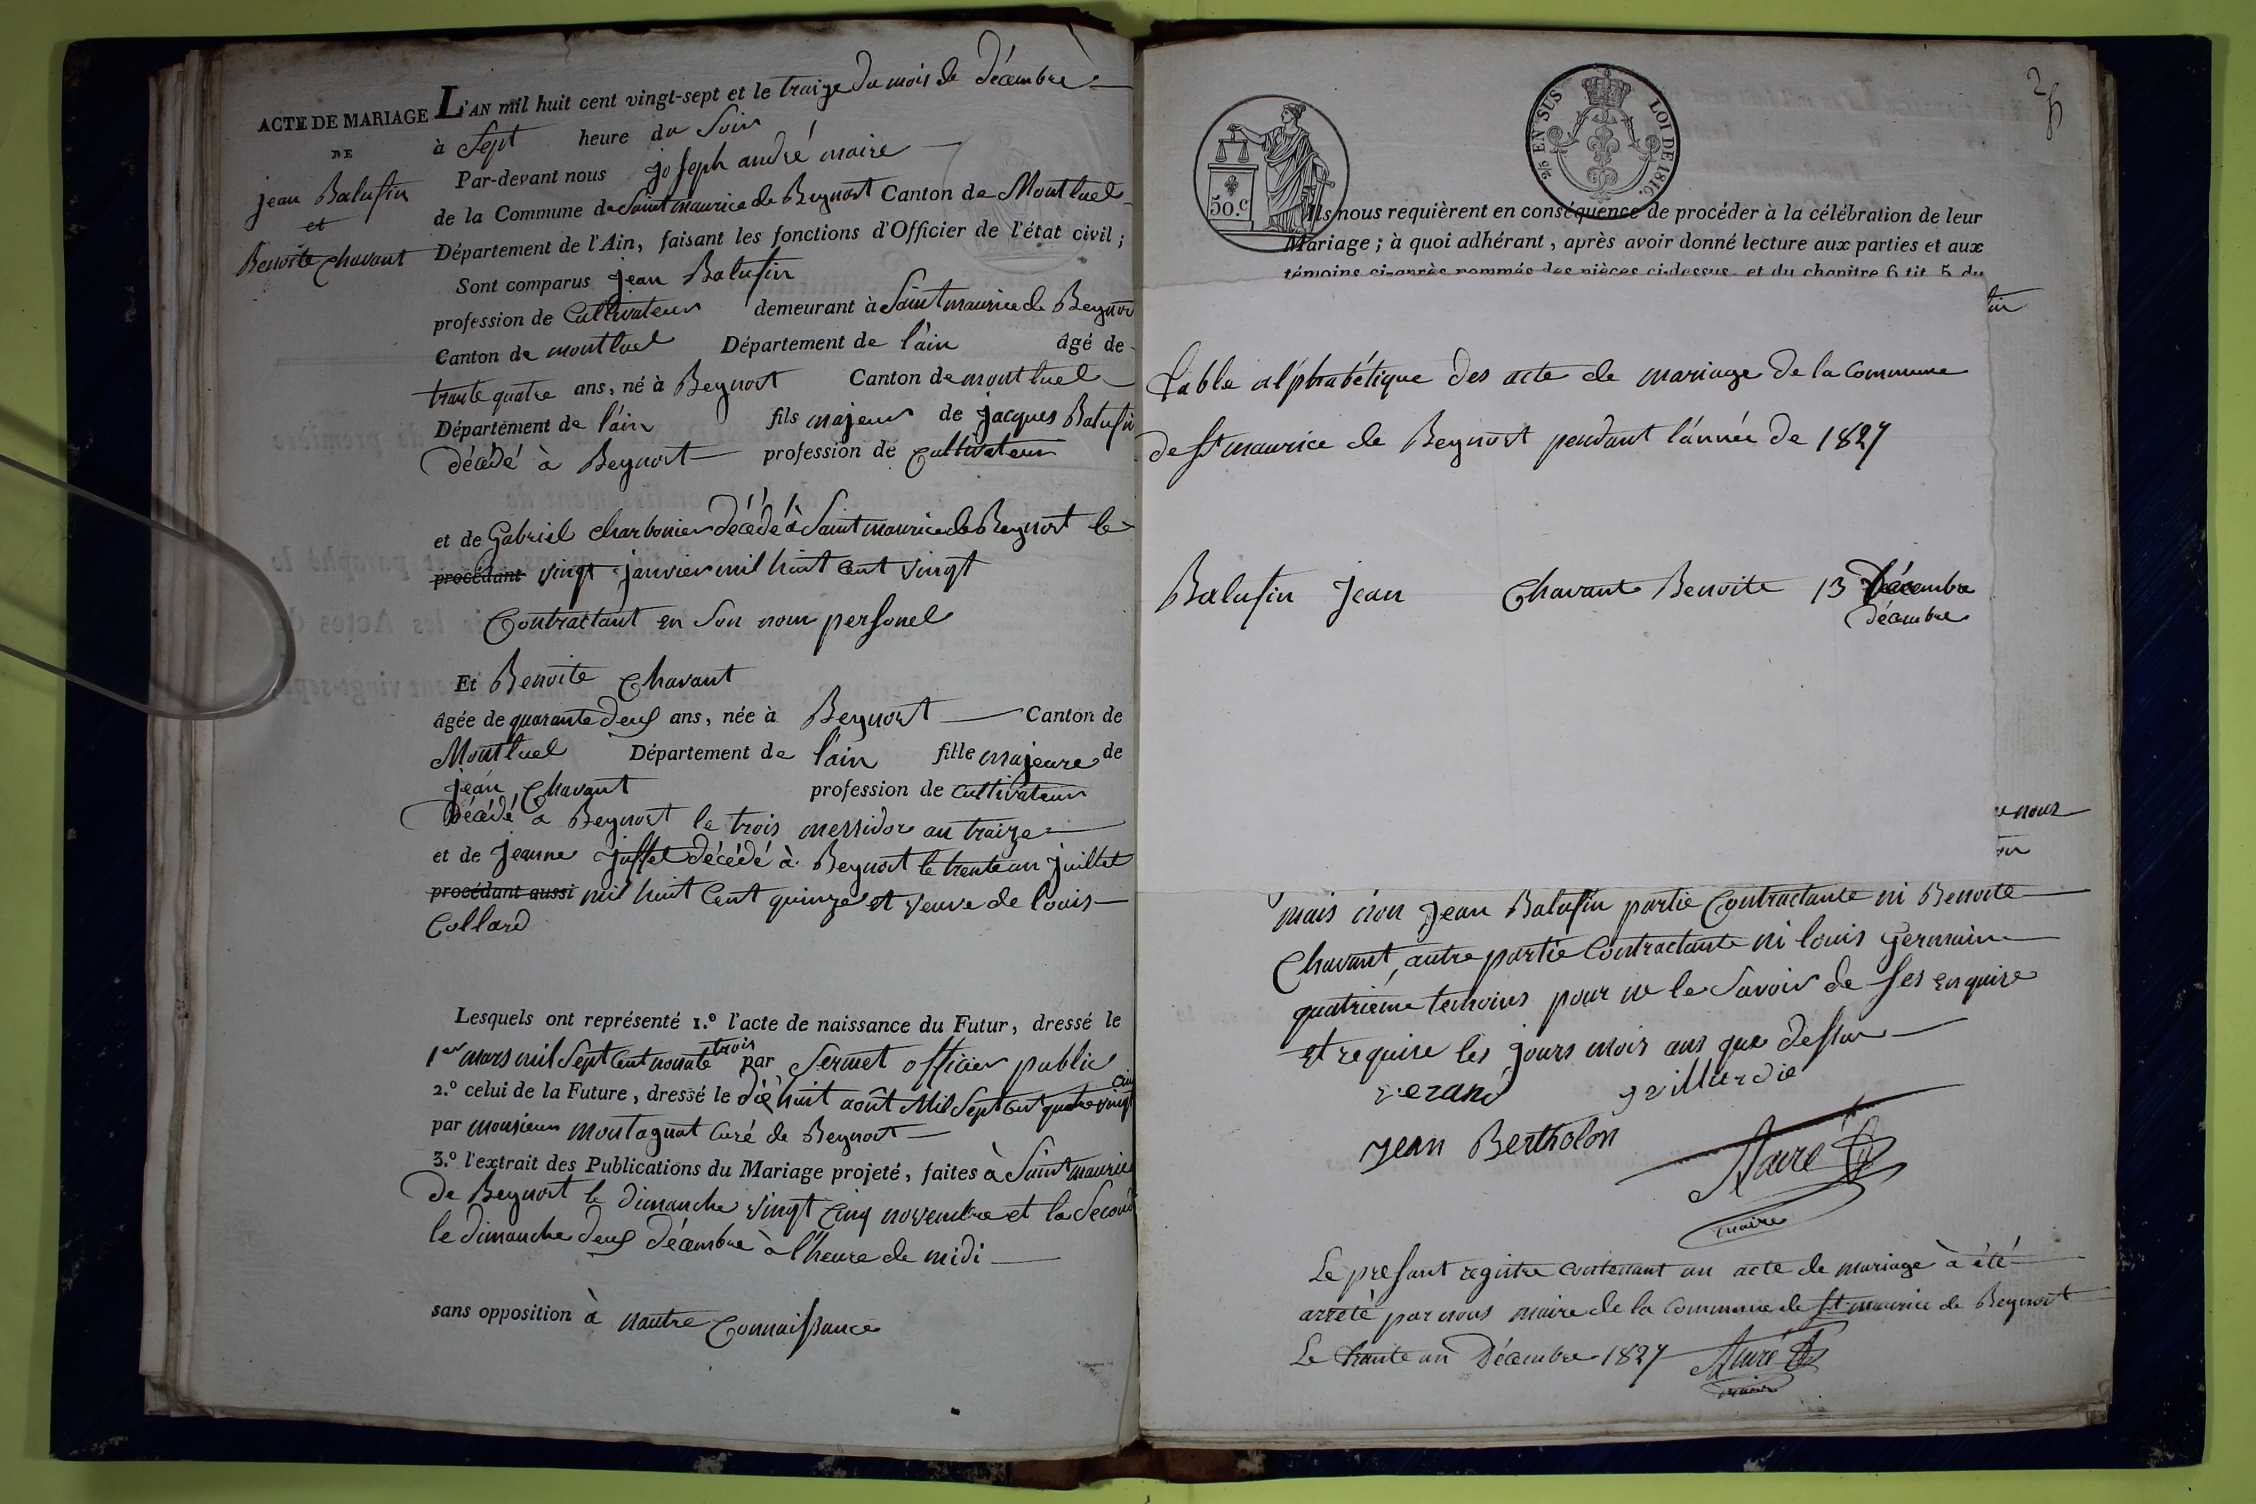 ACTE DE MARIAGE
DE
jean Balufin
et
Benoite Chavant
L'AN mil huit cent vingt-sept et le traize du mois de décembre
à Sept heure du Soir
Par-devant nous joseph andré maire
de la Commune de Saint maurice de Beynost Canton de Montluel
Département de l'Ain, faisant les fonctions d'Officier de l'état civil ;
Sont comparus jean Balufin
profession de Cultivateur demeurant à Saint maurice de Beynos
Canton de montluel Département de l'ain âgé de
trante quatre ans, né à Beynost Canton de montluel
Département de l'ain fils majeur de jacques Balufin
décédé à Beynost profession de Cultivateur
et de Gabriel charbonier décédé à Saint maurice de Beynost le
procédant vingt janvier mil huit cent vingt
Contractant en son nom personel
Et Benoite Chavant
âgée de quarante deux ans, née à Beynost Canton de
Montluel Département de l'ain fille majeure de
jean Chavant profession de cultivateur
Décédé à Beynost le trois messidor an traize
et de jeanne juffet décédé à Beynost le trente un juillet
procédant aussi mil huit Cent quinze et veuve de louis
Collard
Lesquels ont représenté 1.º l'acte de naissance du Futur, dressé le
1er mars mil Sept Cent nonante trois par Sermet officier public
2.º celui de la Future, dressé le dix huit août Mil Sept Cent quatre vingt cin
par monsieur montagnat Curé de Beynost
3.º l'extrait des Publications du Mariage projeté, faites à Saint maurice
de Beynost le dimanche vingt Cinq novembre et la Second
le dimanche deux décembre à l'heure de midi
sans opposition à nautre Connaissance
25 EN SUS
LOI DE 1816.
50.c
Ils nous requièrent en conséquence de procéder à la célébration de leur
Mariage ; à quoi adhérant, après avoir donné lecture aux parties et aux
témoins ci-après nommés des pièces ci-dessus, et du chapitre 6 tit. 5 du
Table alphabétique des acte de mariage de la Commune
de St maurice de Beynost pendant l'année de 1827
Balufin Jean Chavant Benoite 13 Décembre
décembre
nous
mais non Jean Balufin partie Contractante ni Benoite
Chavant, autre partie Contractante ni louis Germain
quatrième temoins pour ne le Savoir de ses enquire
et require les jours mois ans que dessus
verand
Jean Bertholon
maire
Le presant registre contenant un acte de mariage à été
arreté par nous maire de la Commune de St maurice de Beynost
Le trante un Décembre 1827
maire